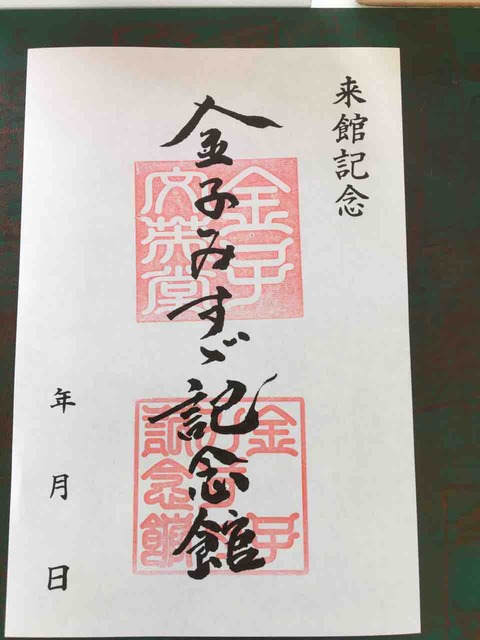 来館記念
金子みすゞ記念館
金子
文英堂
金子
記念館
年 月 日